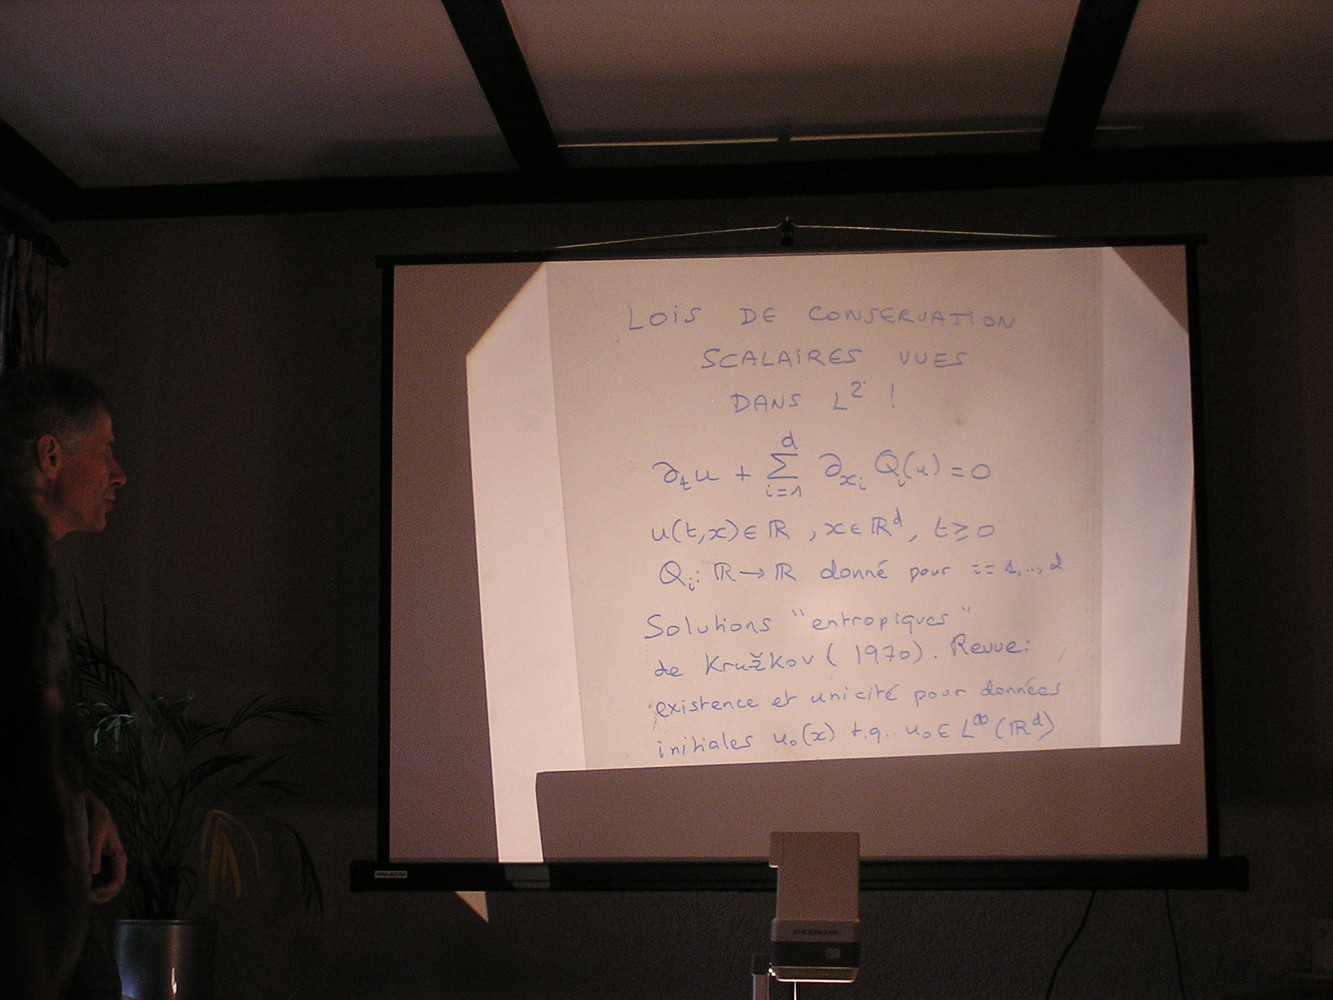 LOIS DE CONSERVATION
SCALAIRES VUES
DANS L² !
∂ₜu + ∑_{i=1}^{d} ∂_{xᵢ} Qᵢ(u) = 0
u(t,x) ∈ ℝ , x ∈ ℝᵈ, t ≥ 0
Qᵢ: ℝ → ℝ donné pour i = 1,..,d
Solutions "entropiques"
de Kružkov ( 1970). Revue:
existence et unicité pour données
initiales u₀(x) t.q. u₀ ∈ L^∞(ℝᵈ)